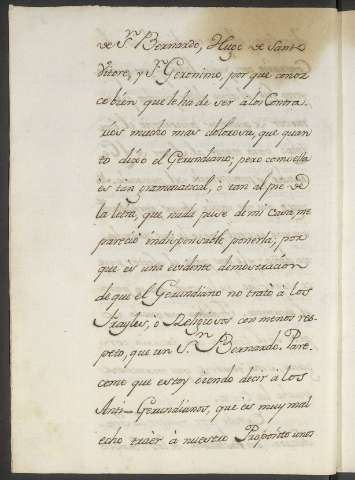 de S.n Bernardo, Hugo de Sant
Vitore, y S.n Geronimo, por que conoz
co bien que le ha de ser à los Contra
rios mucho mas dolorosa, que quan
to dixo el Gerundiano; pero como ella
es tan gramatical, ò tan al pie de
la letra, que nada puse de mi casa, me
pareciò indispensable ponerla; por
que es una evidente demostracion
de que el Gerundiano no tratò à los
Frayles, ò Religiosos con menos res-
peto, que un S.n Bernardo. Pare-
ceme que estoy oiendo decir à los
Anti-Gerundianos, que es muy mal
echo traer à nuestro Proposito unos